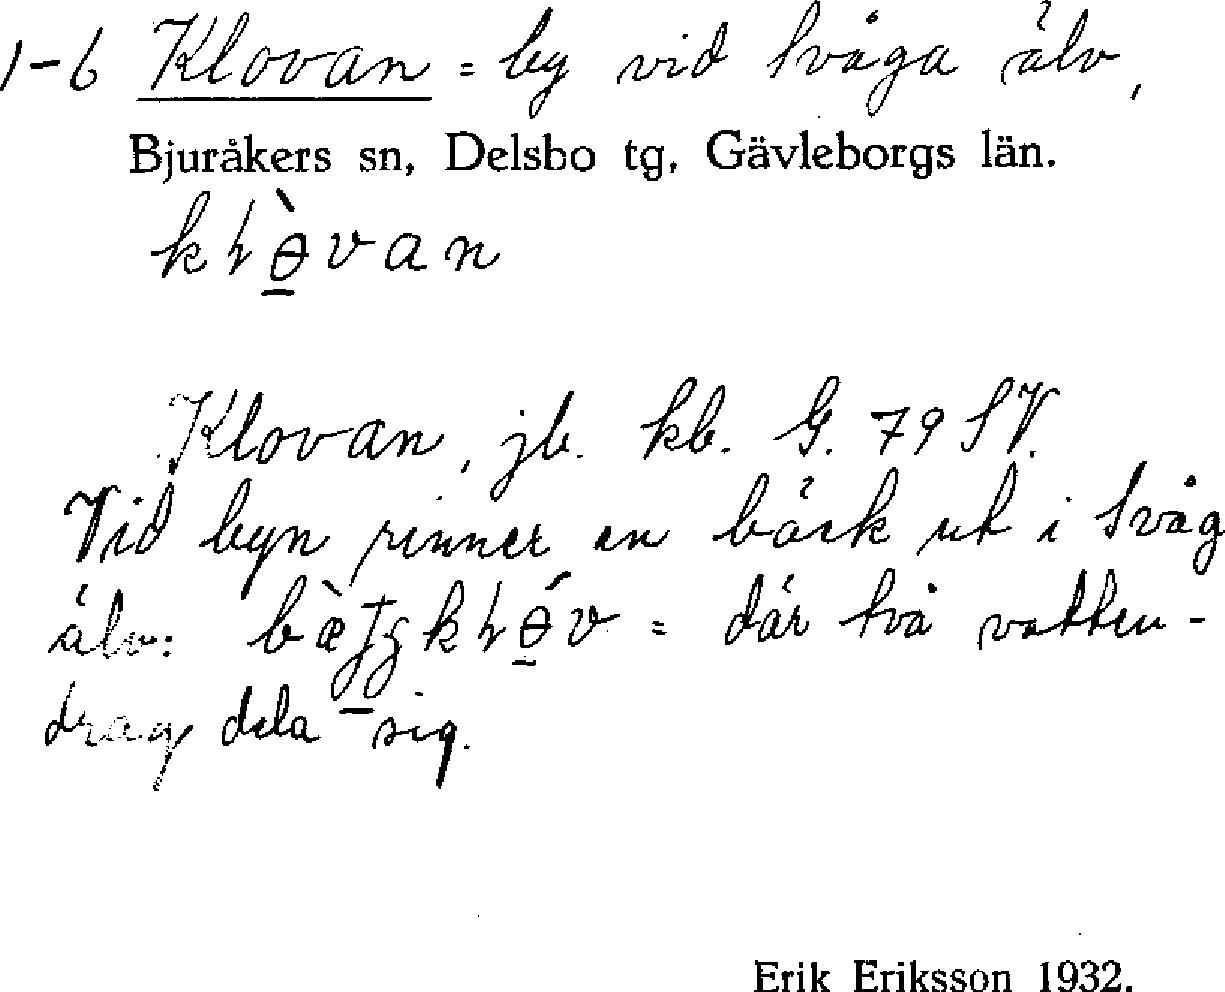 1-6 Klovan = by vid Svåga älv,
Bjuråkers sn, Delsbo tg, Gävleborgs län.
kɫɵ̲̀van
Klovan, jb. kb. G. 79 SV.
Vid byn rinner en bäck ut i Svåg
älv: = där två vatten-
drag dela sig.
Erik Eriksson 1932.